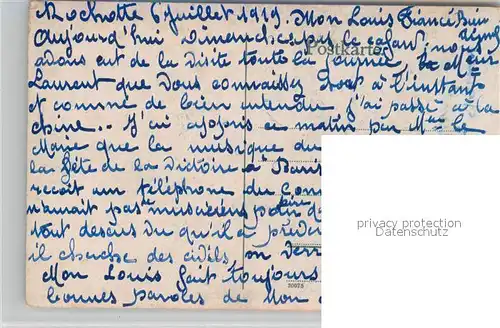 Rochotte 6 juillet 1919. Mon Louis Fiancé
Aujourd'hui Dimanche le nous
Postkarte
avons eut de la visite toute la journée, Mr
Laurent que vous connaissez à l'instant
et comme de bien entendu j'ai passé à la
chine.. J'ai appris ce matin par Mr le
Maire que la musique du
la fête de la Victoire à Paris
recoit un téléphone du Com
n'aurait pas musiciens pour d
tout dessus du qu'il a
il cherche des civils, on verr
Mon Louis fait toujours
bonnes paroles de Mon
privacy protection
Datenschutz